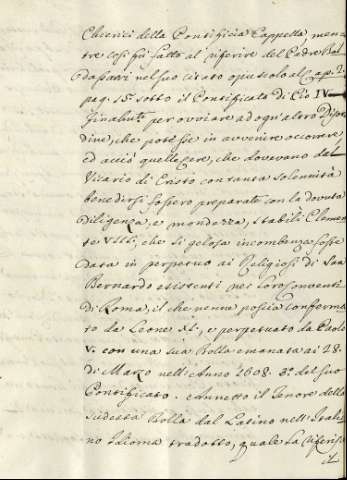 Chierici della Pontificia Cappella, men-
tre così fù fatto al riferire del Padre Bal
dassarri nel suo citato opuscolo al Cap. 2.
pag. 15. sotto il Pontificato di Pio IV.
Finalmte per ovviare ad ogn'altro disor
dine, che potesse in avvenire occorrere
ed acciò quelle Cere, che dovevano dal
Vicario di Cristo con tanta solennità
benedirsi fossero preparate con la dovuta
diligenza, e mondezza, stabilì Clemen-
te VIII, che si gelosa incombenza fosse
data in perpetuo ai Religiosi di San
Bernardo esistenti nei loro conventi
di Roma, il che venne poscia conferma-
to da Leone XI., e perpetuato da Paolo
V. con una sua Bolla emanata ai 28.
di Marzo nell'Anno 1608. 3º. del suo
Pontificato. Annetto il Tenore della
sudetta Bolla dal Latino nell'Itali-
no Idioma tradotto, quale la riferisce